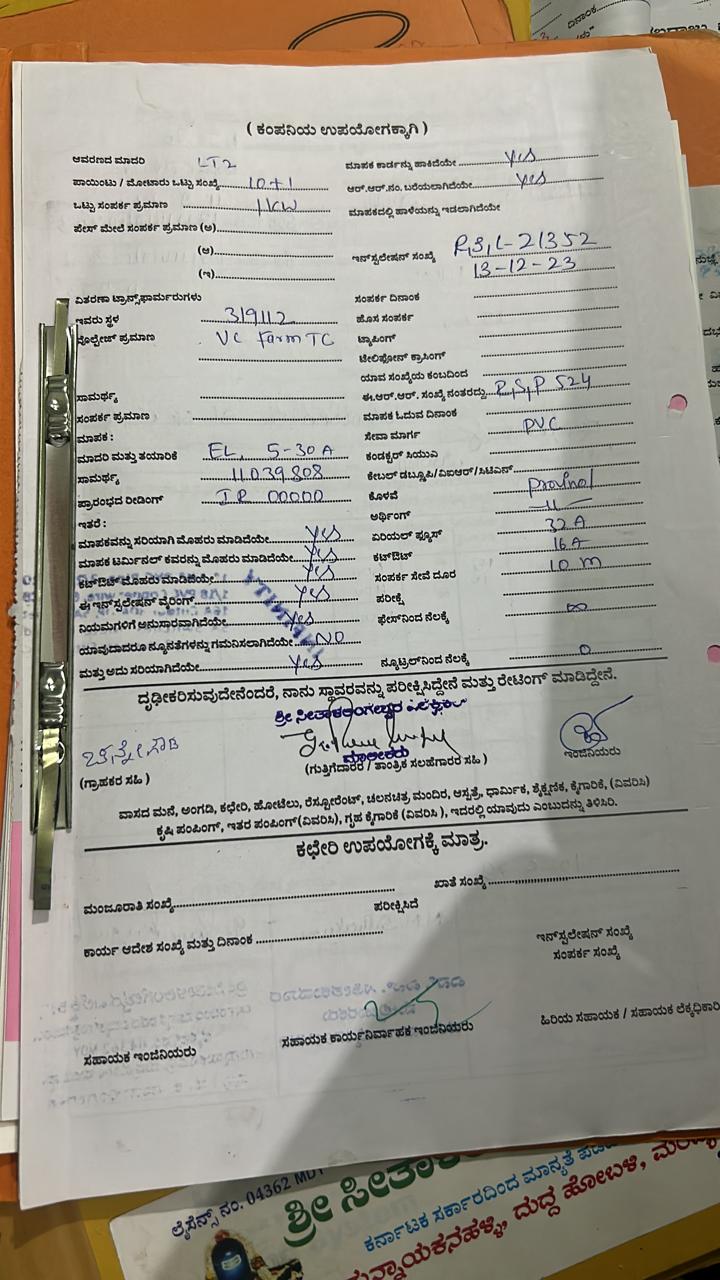 ದಿನಾಂಕ
( ಕಂಪನಿಯ ಉಪಯೋಗಕ್ಕಾಗಿ )
ಆವರಣದ ಮಾದರಿ LT2 ಮಾಪಕ ಕಾರ್ಡನ್ನು ಹಾಕಿದೆಯೇ Yes
ಪಾಯಿಂಟು / ಮೋಟಾರು ಒಟ್ಟು ಸಂಖ್ಯೆ 10+1 ಆರ್.ಆರ್.ನಂ. ಬರೆಯಲಾಗಿದೆಯೇ Yes
ಒಟ್ಟು ಸಂಪರ್ಕ ಪ್ರಮಾಣ 1KW ಮಾಪಕದಲ್ಲಿ ಹಾಳೆಯನ್ನು ಇಡಲಾಗಿದೆಯೇ
ಫೇಸ್ ಮೇಲೆ ಸಂಪರ್ಕ ಪ್ರಮಾಣ (ಅ)
(ಆ) ಇನ್‌ಸ್ಟಲೇಷನ್ ಸಂಖ್ಯೆ R,S,L-21352
(ಇ) 13-12-23
ವಿತರಣಾ ಟ್ರಾನ್ಸ್‌ಫಾರ್ಮರುಗಳು ಸಂಪರ್ಕ ದಿನಾಂಕ
ಇವರು ಸ್ಥಳ 319112 ಹೊಸ ಸಂಪರ್ಕ
ವೋಲ್ಟೇಜ್ ಪ್ರಮಾಣ VC Farm TC ಟ್ಯಾಪಿಂಗ್
ಟೇಲಿಫೋನ್ ಕ್ರಾಸಿಂಗ್
ಯಾವ ಸಂಖ್ಯೆಯ ಕಂಬದಿಂದ
ಸಾಮರ್ಥ್ಯ ಈ.ಆರ್.ಆರ್. ಸಂಖ್ಯೆ ನಂತರದ್ದು R,S,P 524
ಸಂಪರ್ಕ ಪ್ರಮಾಣ ಮಾಪಕ ಓದುವ ದಿನಾಂಕ
ಮಾಪಕ : ಸೇವಾ ಮಾರ್ಗ PVC
ಮಾದರಿ ಮತ್ತು ತಯಾರಿಕೆ EL, 5-30 A ಕಂಡಕ್ಟರ್ ಸಿಯುಎ
ಸಾಮರ್ಥ್ಯ 11039808 ಕೇಬಲ್ ಡಬ್ಲೂಪಿ/ವಿಐಆರ್/ಸಿಟಿಎಸ್
ಪ್ರಾರಂಭದ ರೀಡಿಂಗ್ IR 00000 ಕೊಳವೆ
ಇತರೆ : ಅರ್ಥಿಂಗ್ —11—
ಮಾಪಕವನ್ನು ಸರಿಯಾಗಿ ಮೊಹರು ಮಾಡಿದೆಯೇ Yes ಏರಿಯಲ್ ಫ್ಯೂಸ್ 32 A
ಮಾಪಕ ಟರ್ಮಿನಲ್ ಕವರನ್ನು ಮೊಹರು ಮಾಡಿದೆಯೇ Yes ಕಟ್‌ಔಟ್ 16 A
ಕಟ್‌ಔಟ್ ಮೊಹರು ಮಾಡಿದೆಯೇ Yes ಸಂಪರ್ಕ ಸೇವೆ ದೂರ 10 m
ಈ ಇನ್‌ಸ್ಟಲೇಷನ್ ವೈರಿಂಗ್ Yes ಪರೀಕ್ಷೆ
ನಿಯಮಗಳಿಗೆ ಅನುಸಾರವಾಗಿದೆಯೇ Yes ಫೇಸ್‌ನಿಂದ ನೆಲಕ್ಕೆ ∞
ಯಾವುದಾದರೂ ನ್ಯೂನತೆಗಳನ್ನು ಗಮನಿಸಲಾಗಿದೆಯೇ NO
ಮತ್ತು ಅದು ಸರಿಯಾಗಿದೆಯೇ Yes ನ್ಯೂಟ್ರಲ್‌ನಿಂದ ನೆಲಕ್ಕೆ 0
ದೃಢೀಕರಿಸುವುದೇನೆಂದರೆ, ನಾನು ಸ್ಥಾವರವನ್ನು ಪರೀಕ್ಷಿಸಿದ್ದೇನೆ ಮತ್ತು ರೇಟಿಂಗ್ ಮಾಡಿದ್ದೇನೆ.
ಮಾಲೀಕರು
(ಗ್ರಾಹಕರ ಸಹಿ ) (ಗುತ್ತಿಗೆದಾರರ / ತಾಂತ್ರಿಕ ಸಲಹೆಗಾರರ ಸಹಿ ) ಇಂಜಿನಿಯರು
ವಾಸದ ಮನೆ, ಅಂಗಡಿ, ಕಛೇರಿ, ಹೋಟೆಲು, ರೆಸ್ಟೋರೆಂಟ್, ಚಲನಚಿತ್ರ ಮಂದಿರ, ಆಸ್ಪತ್ರೆ, ಧಾರ್ಮಿಕ, ಶೈಕ್ಷಣಿಕ, ಕೈಗಾರಿಕೆ, (ವಿವರಿಸಿ)
ಕೃಷಿ ಪಂಪಿಂಗ್, ಇತರ ಪಂಪಿಂಗ್(ವಿವರಿಸಿ), ಗೃಹ ಕೈಗಾರಿಕೆ (ವಿವರಿಸಿ ), ಇದರಲ್ಲಿ ಯಾವುದು ಎಂಬುದನ್ನು ತಿಳಿಸಿರಿ.
ಕಛೇರಿ ಉಪಯೋಗಕ್ಕೆ ಮಾತ್ರ.
ಮಂಜೂರಾತಿ ಸಂಖ್ಯೆ ಖಾತೆ ಸಂಖ್ಯೆ
ಪರೀಕ್ಷಿಸಿದೆ
ಕಾರ್ಯ ಆದೇಶ ಸಂಖ್ಯೆ ಮತ್ತು ದಿನಾಂಕ ಇನ್‌ಸ್ಟಲೇಷನ್ ಸಂಖ್ಯೆ
ಸಂಪರ್ಕ ಸಂಖ್ಯೆ
ಸಹಾಯಕ ಇಂಜಿನಿಯರು ಸಹಾಯಕ ಕಾರ್ಯನಿರ್ವಾಹಕ ಇಂಜಿನಿಯರು ಹಿರಿಯ ಸಹಾಯಕ / ಸಹಾಯಕ ಲೆಕ್ಕಧಿಕಾರಿ
ಲೈಸೆನ್ಸ್ ನಂ. 04362
ಶ್ರೀ
ಕರ್ನಾಟಕ ಸರ್ಕಾರದಿಂದ ಮಾನ್ಯತೆ
ದುದ್ದ ಹೋಬಳಿ,